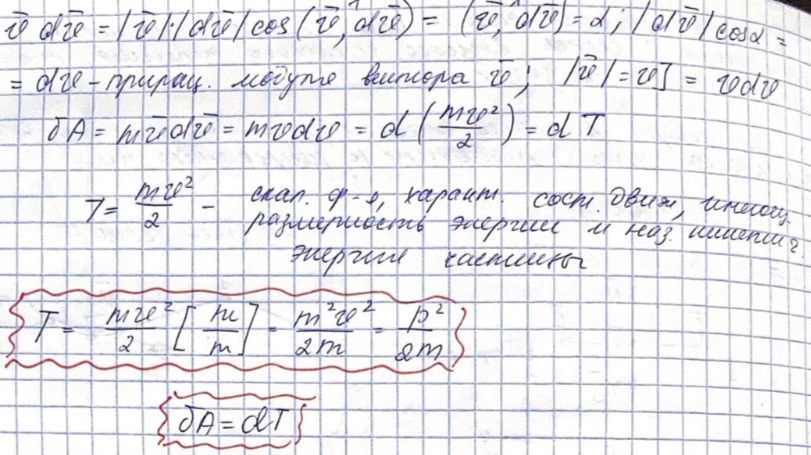 v̄ dv̄ = |v̄|·|dv̄| cos(v̄,^dv̄) = (v̄,^dv̄) = α; |dv̄| cosα =
= dv - прирац. модуля вектора v̄; |v̄| = v] = vdv
δA = mv̄dv̄ = mvdv = d(mv²/2) = dT
T = mv²/2 - скал. ф-я, характ. сост. движ, имеющ.
размерность энергии и наз. кинетич.
энергие частицы
T = mv²/2 [m/m] = m²v²/2m = p²/2m
δA = dT